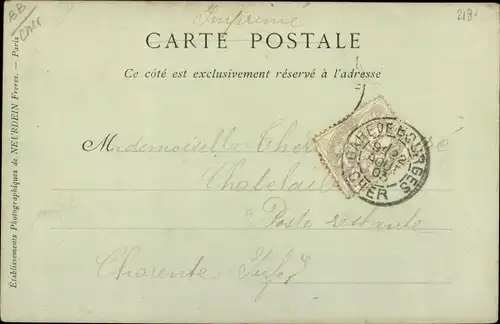 BB
Cher
Imprimé
218
CARTE POSTALE
Ce côté est exclusivement réservé à l'adresse
Mademoiselle
Chatelai
Poste restante
Charente Infre
GARE DE BOURGES
AOUT
03
CHER
Établissements Photographiques de NEURDEIN Frères. — Paris